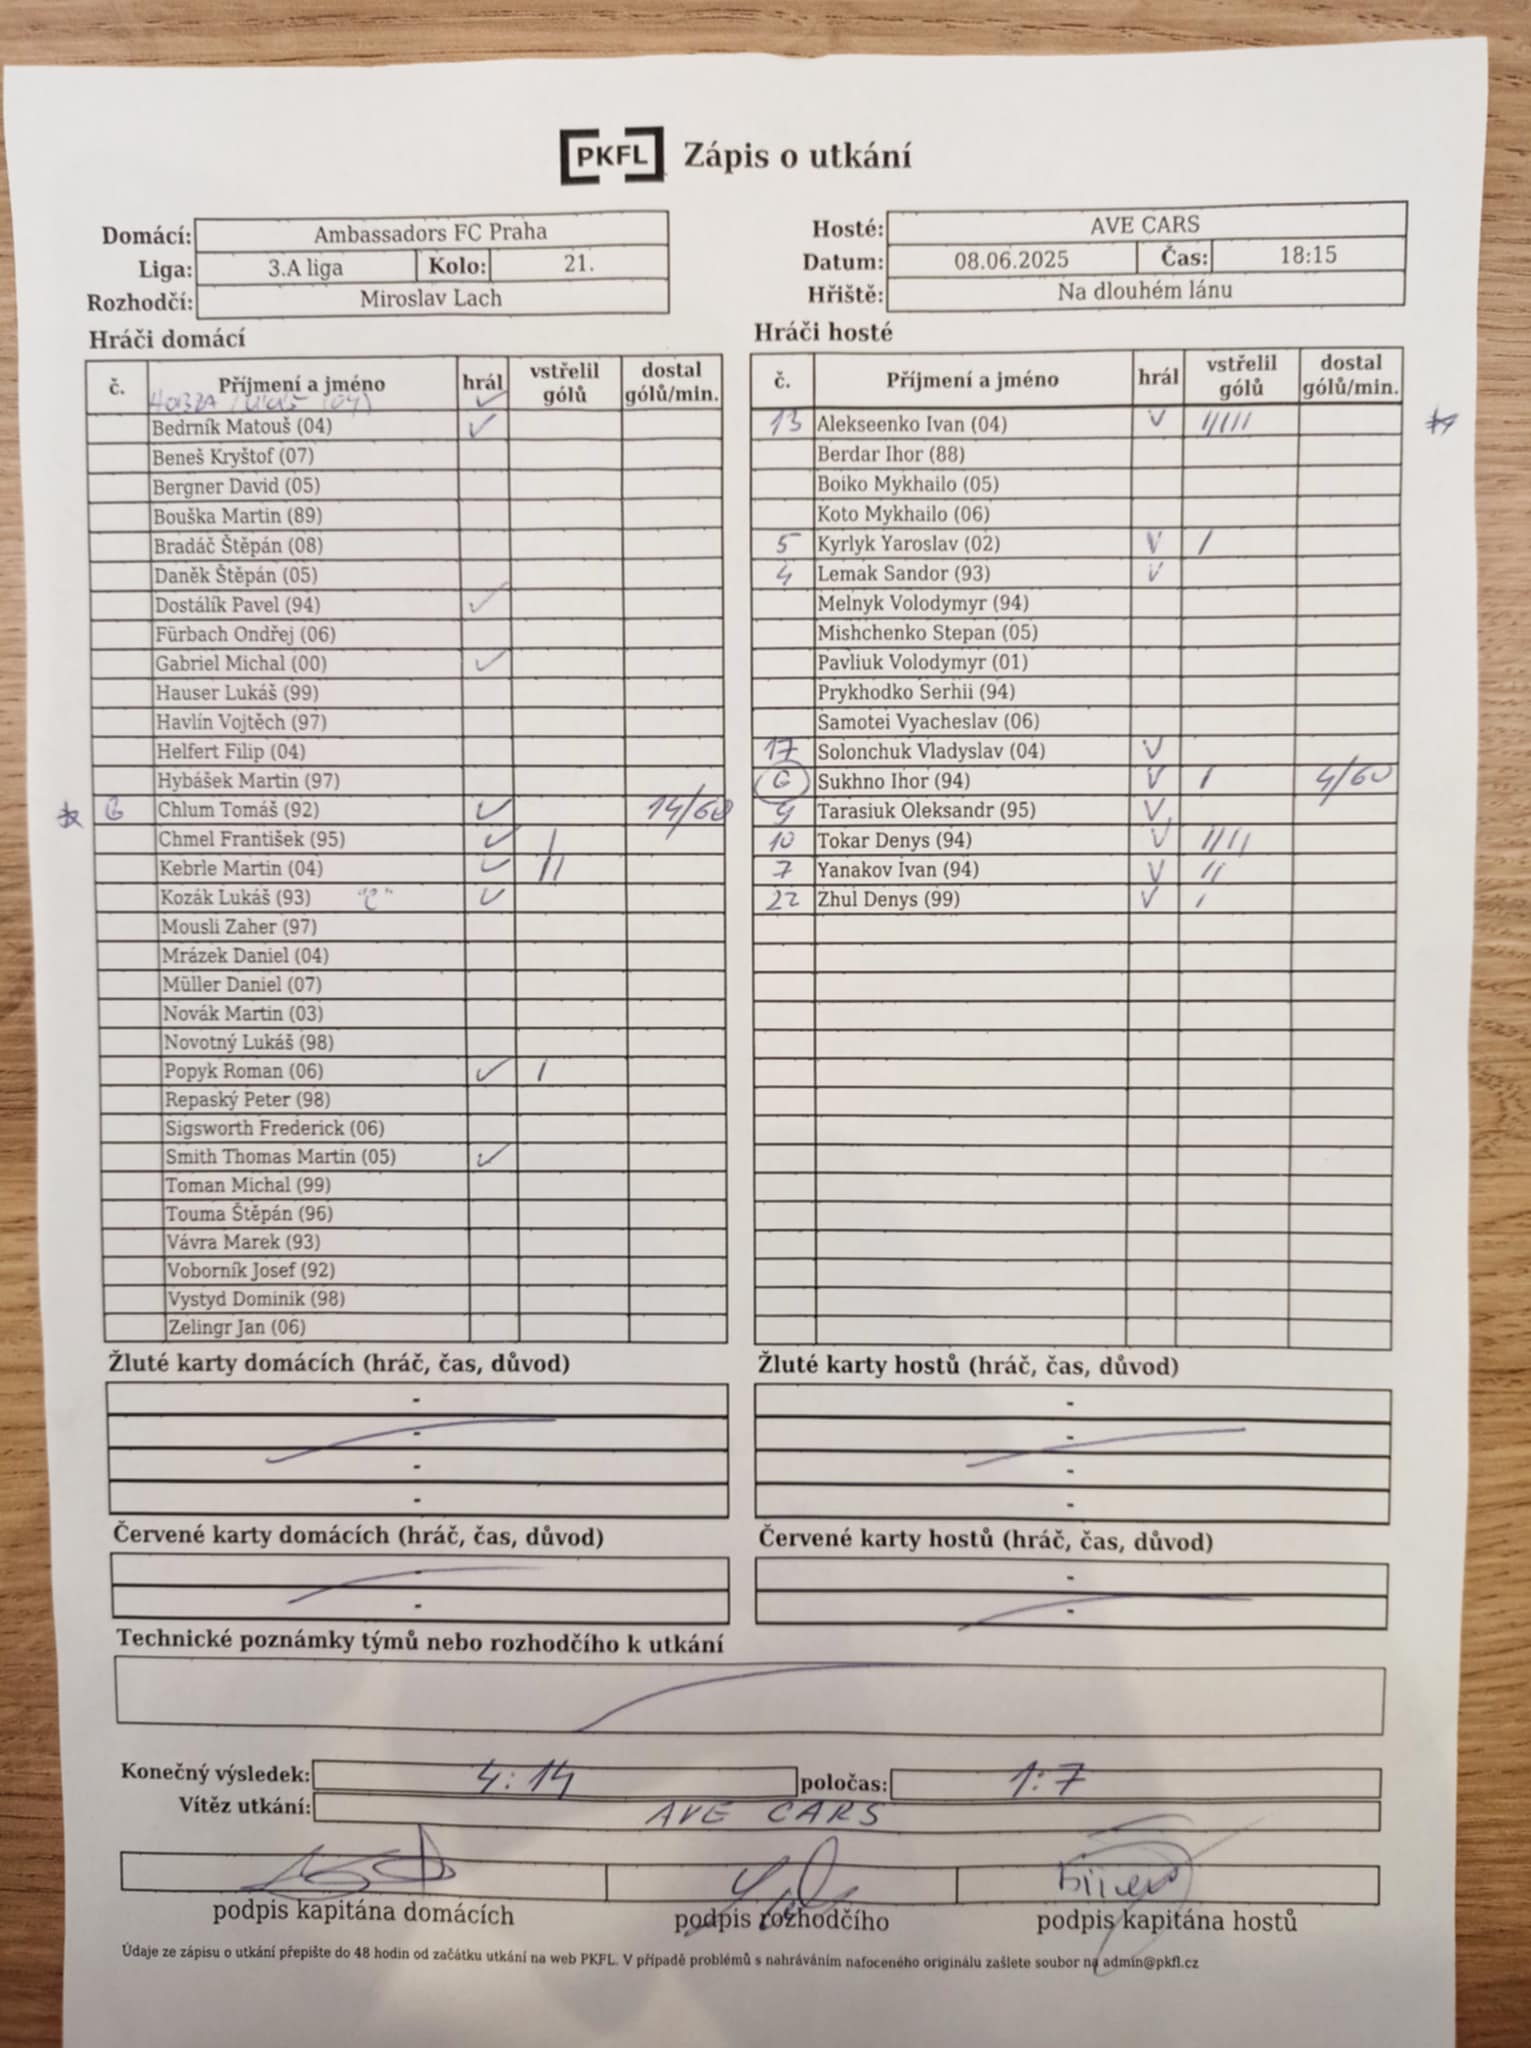 PKFL Zápis o utkání
Domácí: Ambassadors FC Praha Hosté: AVE CARS
Liga: 3.A liga Kolo: 21. Datum: 08.06.2025 Čas: 18:15
Rozhodčí: Miroslav Lach Hřiště: Na dlouhém lánu
Hráči domácí
č. Příjmení a jméno hrál vstřelil gólů dostal gólů/min.
(04) ✓
Bedrník Matouš (04) ✓
Beneš Kryštof (07)
Bergner David (05)
Bouška Martin (89)
Bradáč Štěpán (08)
Daněk Štěpán (05)
Dostálík Pavel (94) ✓
Fürbach Ondřej (06)
Gabriel Michal (00) ✓
Hauser Lukáš (99)
Havlín Vojtěch (97)
Helfert Filip (04)
Hybášek Martin (97)
* G Chlum Tomáš (92) ✓ 14/60
Chmel František (95) ✓ |
Kebrle Martin (04) ✓ ||
Kozák Lukáš (93) "C" ✓
Mousli Zaher (97)
Mrázek Daniel (04)
Müller Daniel (07)
Novák Martin (03)
Novotný Lukáš (98)
Popyk Roman (06) ✓ |
Repaský Peter (98)
Sigsworth Frederick (06)
Smith Thomas Martin (05) ✓
Toman Michal (99)
Touma Štěpán (96)
Vávra Marek (93)
Voborník Josef (92)
Vystyd Dominik (98)
Zelingr Jan (06)
Hráči hosté
č. Příjmení a jméno hrál vstřelil gólů dostal gólů/min.
13 Alekseenko Ivan (04) V ||||| *
Berdar Ihor (88)
Boiko Mykhailo (05)
Koto Mykhailo (06)
5 Kyrlyk Yaroslav (02) V |
4 Lemak Sandor (93) V
Melnyk Volodymyr (94)
Mishchenko Stepan (05)
Pavliuk Volodymyr (01)
Prykhodko Serhii (94)
Samotei Vyacheslav (06)
17 Solonchuk Vladyslav (04) V
G Sukhno Ihor (94) V | 4/60
9 Tarasiuk Oleksandr (95) V
10 Tokar Denys (94) V ||||
7 Yanakov Ivan (94) V ||
22 Zhul Denys (99) V |
Žluté karty domácích (hráč, čas, důvod) Žluté karty hostů (hráč, čas, důvod)
- -
- -
- -
- -
Červené karty domácích (hráč, čas, důvod) Červené karty hostů (hráč, čas, důvod)
- -
- -
Technické poznámky týmů nebo rozhodčího k utkání
Konečný výsledek: 4:14 poločas: 1:7
Vítěz utkání: AVE CARS
podpis kapitána domácích podpis rozhodčího podpis kapitána hostů
Údaje ze zápisu o utkání přepište do 48 hodin od začátku utkání na web PKFL. V případě problémů s nahráváním nafoceného originálu zašlete soubor na admin@pkfl.cz